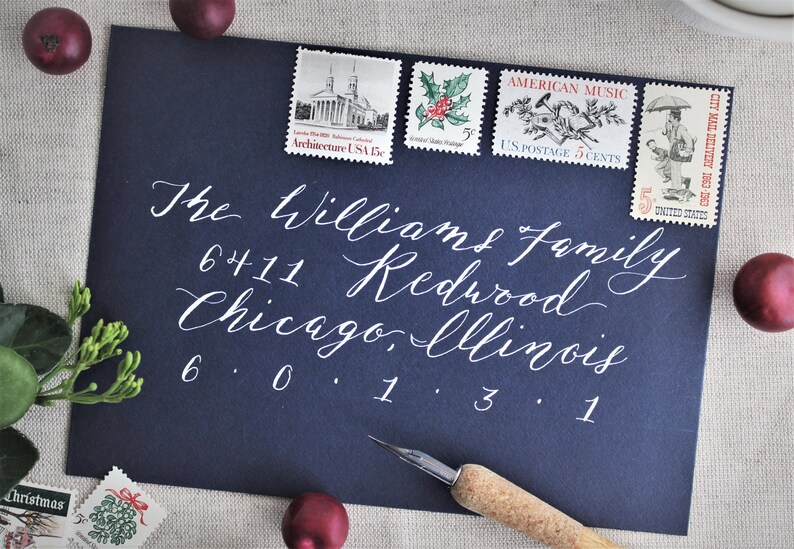 Latrobe 1764-1820 Baltimore Cathedral
Architecture USA 15c
5c
United States Postage
AMERICAN MUSIC
U.S. POSTAGE 5 CENTS
CITY MAIL DELIVERY 1863-1963
5
UNITED STATES
The Williams Family
6411 Redwood
Chicago, Illinois
6 · 0 · 1 · 3 · 1
Christmas
5c
United States